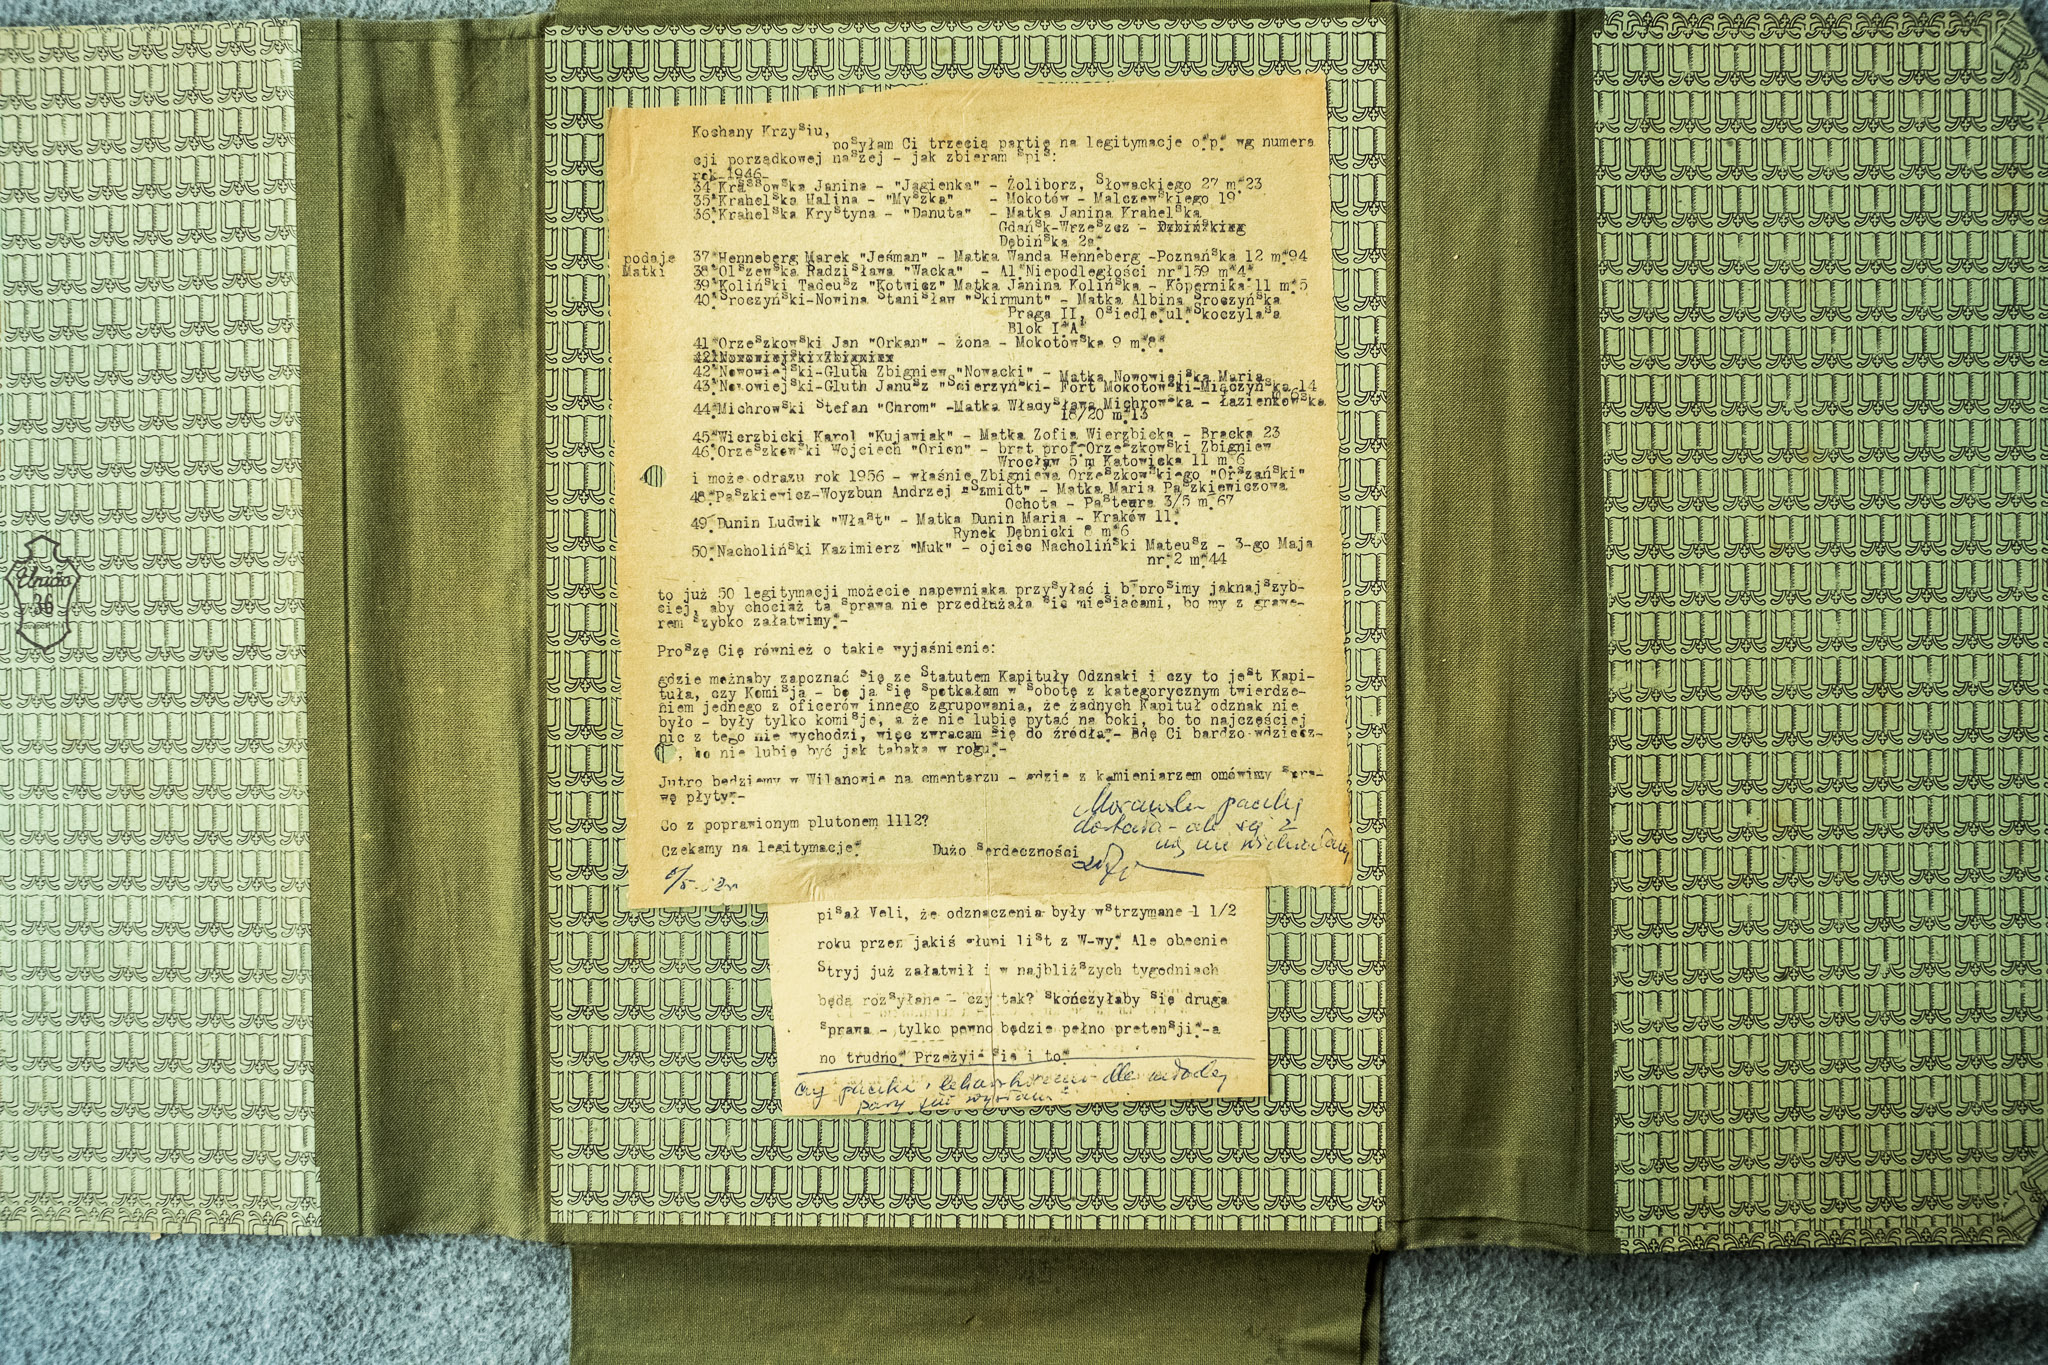 Kochany Krzysiu,
posyłam Ci trzecią partię na legitymacje o.p. wg numera
cji porządkowej naszej - jak zbieram spis:
rok 1946
34.Krassowska Janina - "Jagienka" - Żoliborz, Słowackiego 27 m.23
35.Krahelska Halina - "Myszka" - Mokotów - Malczewskiego 19
36.Krahelska Krystyna - "Danuta" - Matka Janina Krahelska
Gdańsk-Wrzeszcz -
Dębińska 2a.
podaje
Matki
37.Henneberg Marek "Jeśman" - Matka Wanda Henneberg -Poznańska 12 m.94
38.Olszewska Radzisława "Wacka" - Al.Niepodległości nr.159 m.4.
39.Koliński Tadeusz "Kotwicz" Matka Janina Kolińska - Kopernika 11 m.5
40.Sroczyński-Nowina Stanisław "Skirmunt" - Matka Albina Sroczyńska
Praga II, Osiedle,ul.Skoczylasa
Blok I.A.
41.Orzeszkowski Jan "Orkan" - żona - Mokotowska 9 m.8.
42.Nowowiejski Zbigniew
42.Nowowiejski-Gluth Zbigniew "Nowacki" - Matka Nowowiejska Maria
43.Nowowiejski-Gluth Janusz "Ścierzyński- Fort Mokotowski-Miączyńska 14
44.Michrowski Stefan "Chrom" -Matka Władysława Michrowska - Łazienkowska
18/20 m.13
45.Wierzbicki Karol "Kujawiak" - Matka Zofia Wierzbicka - Bracka 23
46.Orzeszkowski Wojciech "Orion" - brat prof.Orzeszkowski Zbigniew
Wrocław 5 m Katowicka 11 m.6
i może odrazu rok 1956 - właśnie Zbigniewa Orzeszkowskiego "Orszański"
48.Paszkiewicz-Woyzbun Andrzej "Szmidt" - Matka Maria Paszkiewiczowa
Ochota - Pasteura 3/5 m.67
49.Dunin Ludwik "Włast" - Matka Dunin Maria - Kraków 11.
Rynek Dębnicki 8 m.6
50.Nacholiński Kazimierz "Muk" - ojciec Nacholiński Mateusz - 3-go Maja
nr.2 m.44
to już 50 legitymacji możecie napewniaka przysyłać i b.prosimy jaknajszyb-
ciej, aby chociaż ta sprawa nie przedłużała się miesiącami, bo my z grawe-
rem szybko załatwimy.-
Proszę Cię również o takie wyjaśnienie:
gdzie możnaby zapoznać się ze Statutem Kapituły Odznaki i czy to jest Kapi-
tuła, czy Komisja - bo ja się spotkałam w sobotę z kategorycznym twierdze-
niem jednego z oficerów innego zgrupowania, że żadnych Kapituł odznak nie
było - były tylko komisje, a że nie lubię pytać na boki, bo to najczęściej
nic z tego nie wychodzi, więc zwracam się do źródła.- Bdę Ci bardzo wdzięcz-
, bo nie lubię być jak tabaka w rogu.-
Jutro będziemy w Wilanowie na cmentarzu - gdzie z kamieniarzem omówimy spra-
wę płyty.-
Co z poprawionym plutonem 1112?
Czekamy na legitymacje. Dużo serdeczności
pisał Veli, że odznaczenia były wstrzymane 1 1/2
roku przez jakiś głupi list z W-wy. Ale obecnie
Stryj już załatwił i w najbliższych tygodniach
będą rozsyłane - czy tak? skończyłaby się druga
sprawa - tylko pewno będzie pełno pretensji.-a
no trudno. Przeżyje się i to.
Unido
36